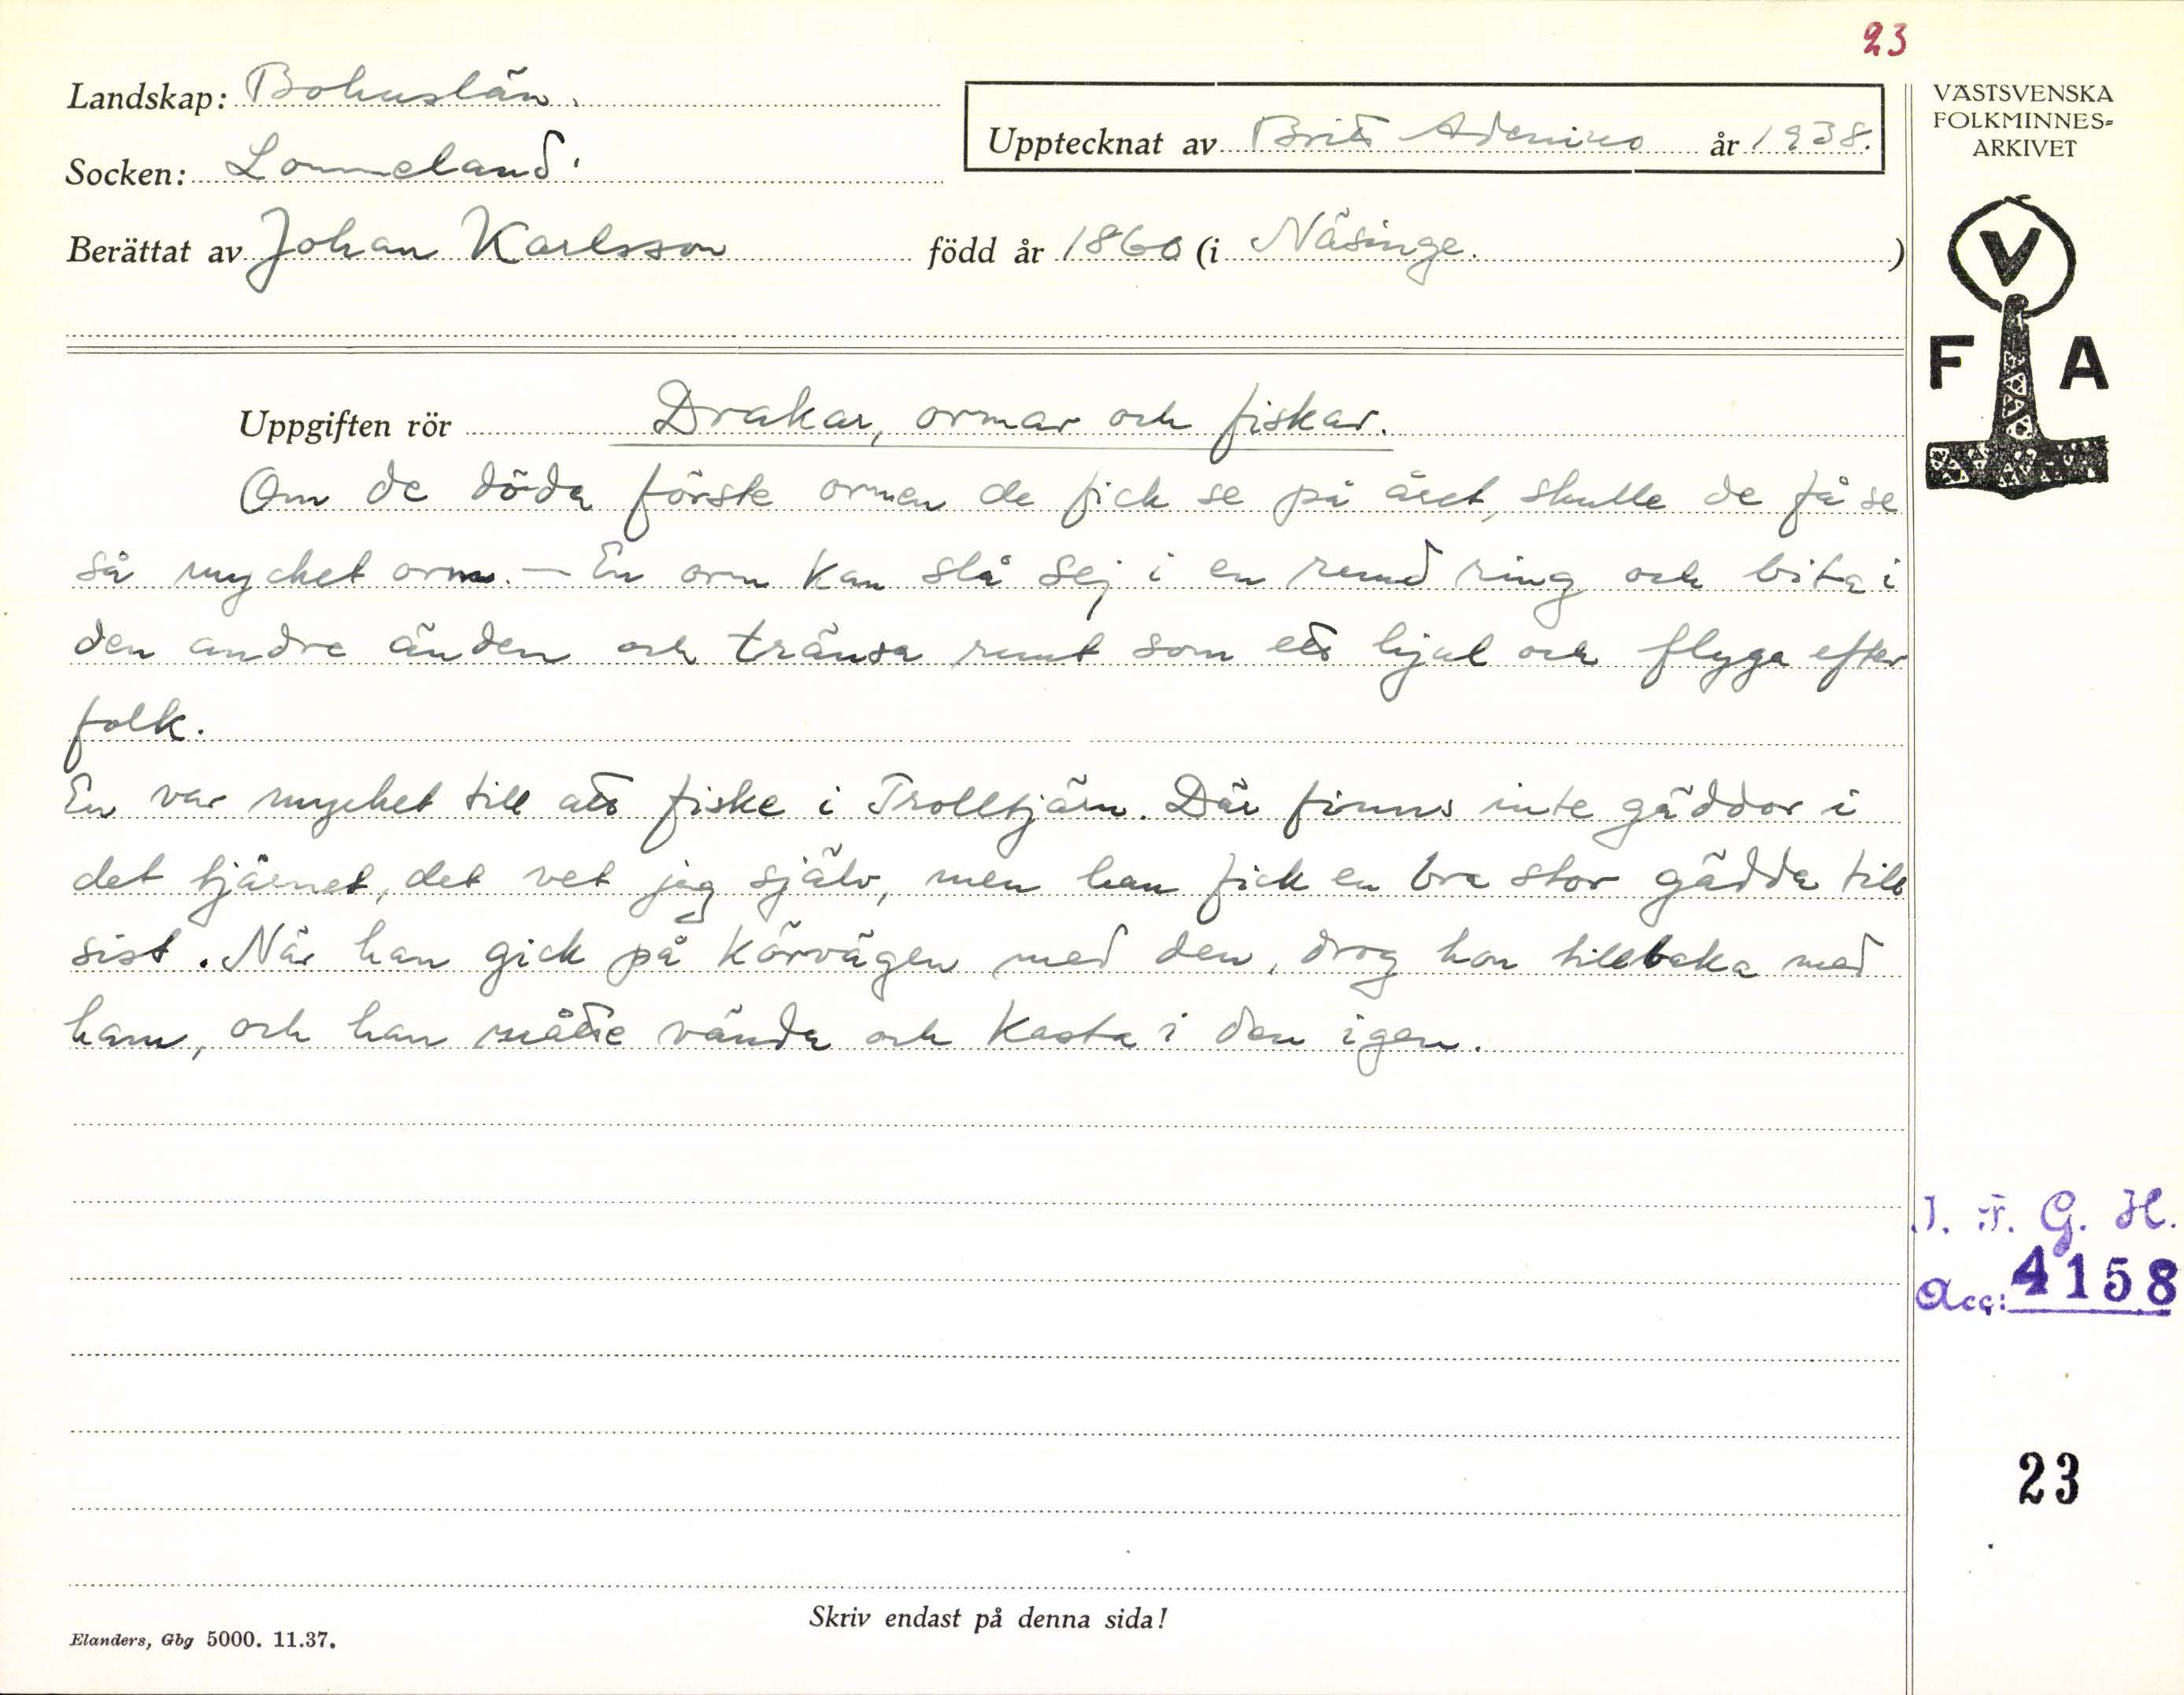 23
Landskap: Bohuslän.
Upptecknat av Britt Adenius år 1938.
Socken: Lommeland.
Berättat av Johan Karlsson född år 1860 (i Näsinge.)
VÄSTSVENSKA
FOLKMINNES-
ARKIVET
V
F A
Uppgiften rör Drakar, ormar och fiskar.
Om de döda förste ormen de fick se på året, skulle de få se
så mychet orm. — En orm kan slå sej i en rund ring och bita i
den andre änden och tränsa runt som ett hjul och flyga efter
folk.
En var mychet till att fiske i Trolltjärn. Där finns inte gäddor i
det tjärnet, det vet jag själv, men han fick en bra stor gädda till
sist. När han gick på körvägen med den, drog hon tillbaka med
ham, och han måtte vända och kasta i den igen.
I. F. G. H.
Acc: 4158
23
Skriv endast på denna sida!
Elanders, Gbg 5000. 11.37.